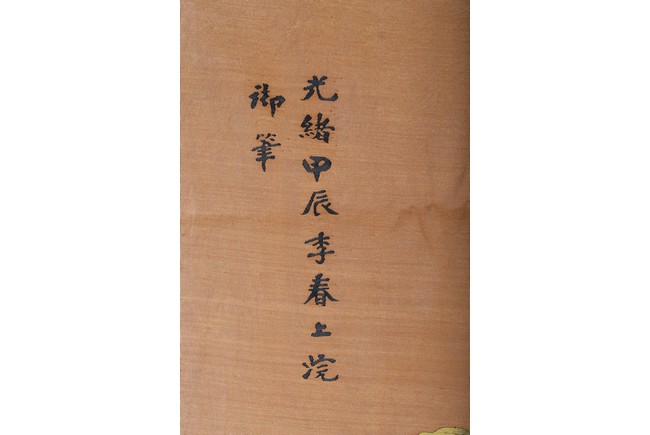 光緒甲辰季春上浣
御筆